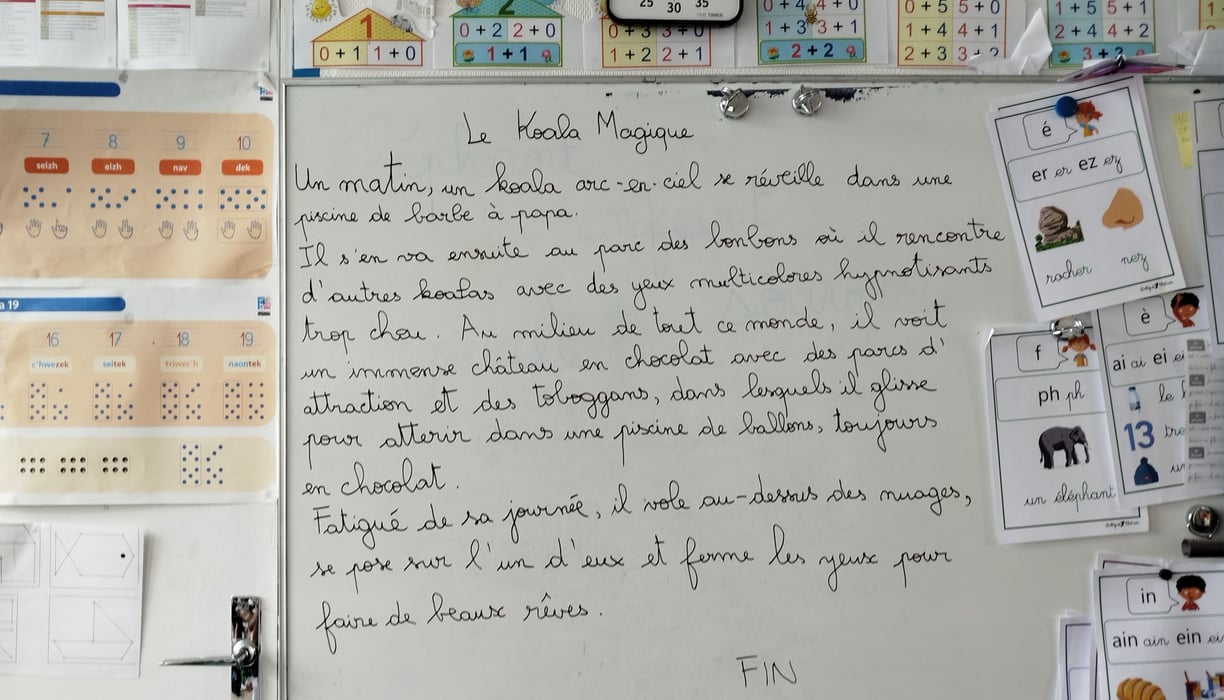 25 30 35
1
0 + 1 1 + 0
2
0 + 2 2 + 0
1 + 1
0 + 3 3 + 0
1 + 2 2 + 1
0 + 4 4 + 0
1 + 3 3 + 1
2 + 2
0 + 5 5 + 0
1 + 4 4 + 1
2 + 3 3 + 2
1 + 5 5 + 1
2 + 4 4 + 2
3 + 3
7 8 9 10
seizh eizh nav dek
a 19
16 17 18 19
c'hwezek seitek triwec'h naontek
Le Koala Magique
Un matin, un koala arc-en-ciel se réveille dans une
piscine de barbe à papa.
Il s'en va ensuite au parc des bonbons où il rencontre
d'autres koalas avec des yeux multicolores hypnotisants
trop chou. Au milieu de tout ce monde, il voit
un immense château en chocolat avec des parcs d'
attraction et des toboggans, dans lesquels il glisse
pour atterir dans une piscine de ballons, toujours
en chocolat.
Fatigué de sa journée, il vole au-dessus des nuages,
se pose sur l'un d'eux et ferme les yeux pour
faire de beaux rêves.
FIN
é
er er ez ez
rocher nez
f
ph ph
un éléphant
è
ai ai ei ei
le
13 tre
un
in
ain ain ein ei